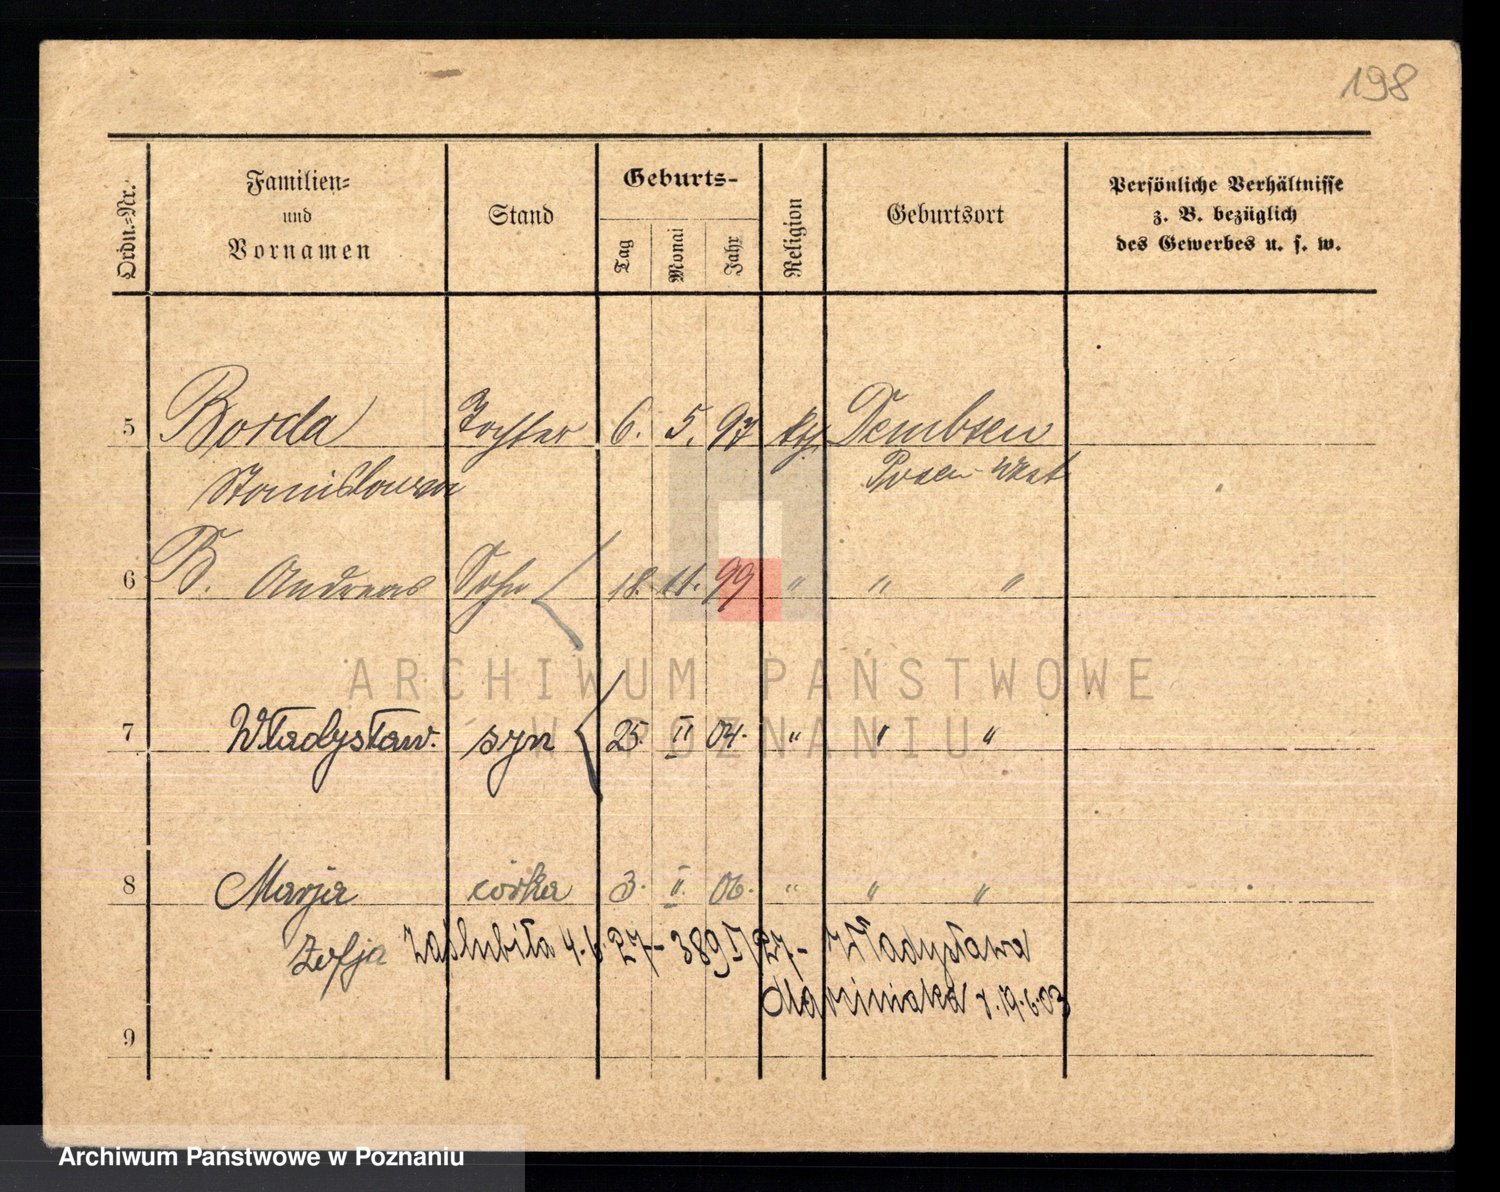 198
Ordn.-Nr.
Familien-
und
Vornamen
Stand
Geburts-
Tag
Monat
Jahr
Religion
Geburtsort
Persönliche Verhältnisse
z. B. bezüglich
des Gewerbes u. s. w.
5 Borda Tochter 6. 5. 97 kth. Dembsen
Stanislawa Posen-West
6 B. Andreas Sohn 18. 11. 99 " " "
ARCHIWUM PAŃSTWOWE
W POZNANIU
7 Władysław. syn 25. II 04. " " "
8 Marja córka 3. II. 06. " " "
Zofja zaślubiła 4.6.27- 389/27- Władysława
Marciniaka r. 19.6.03
9
Archiwum Państwowe w Poznaniu